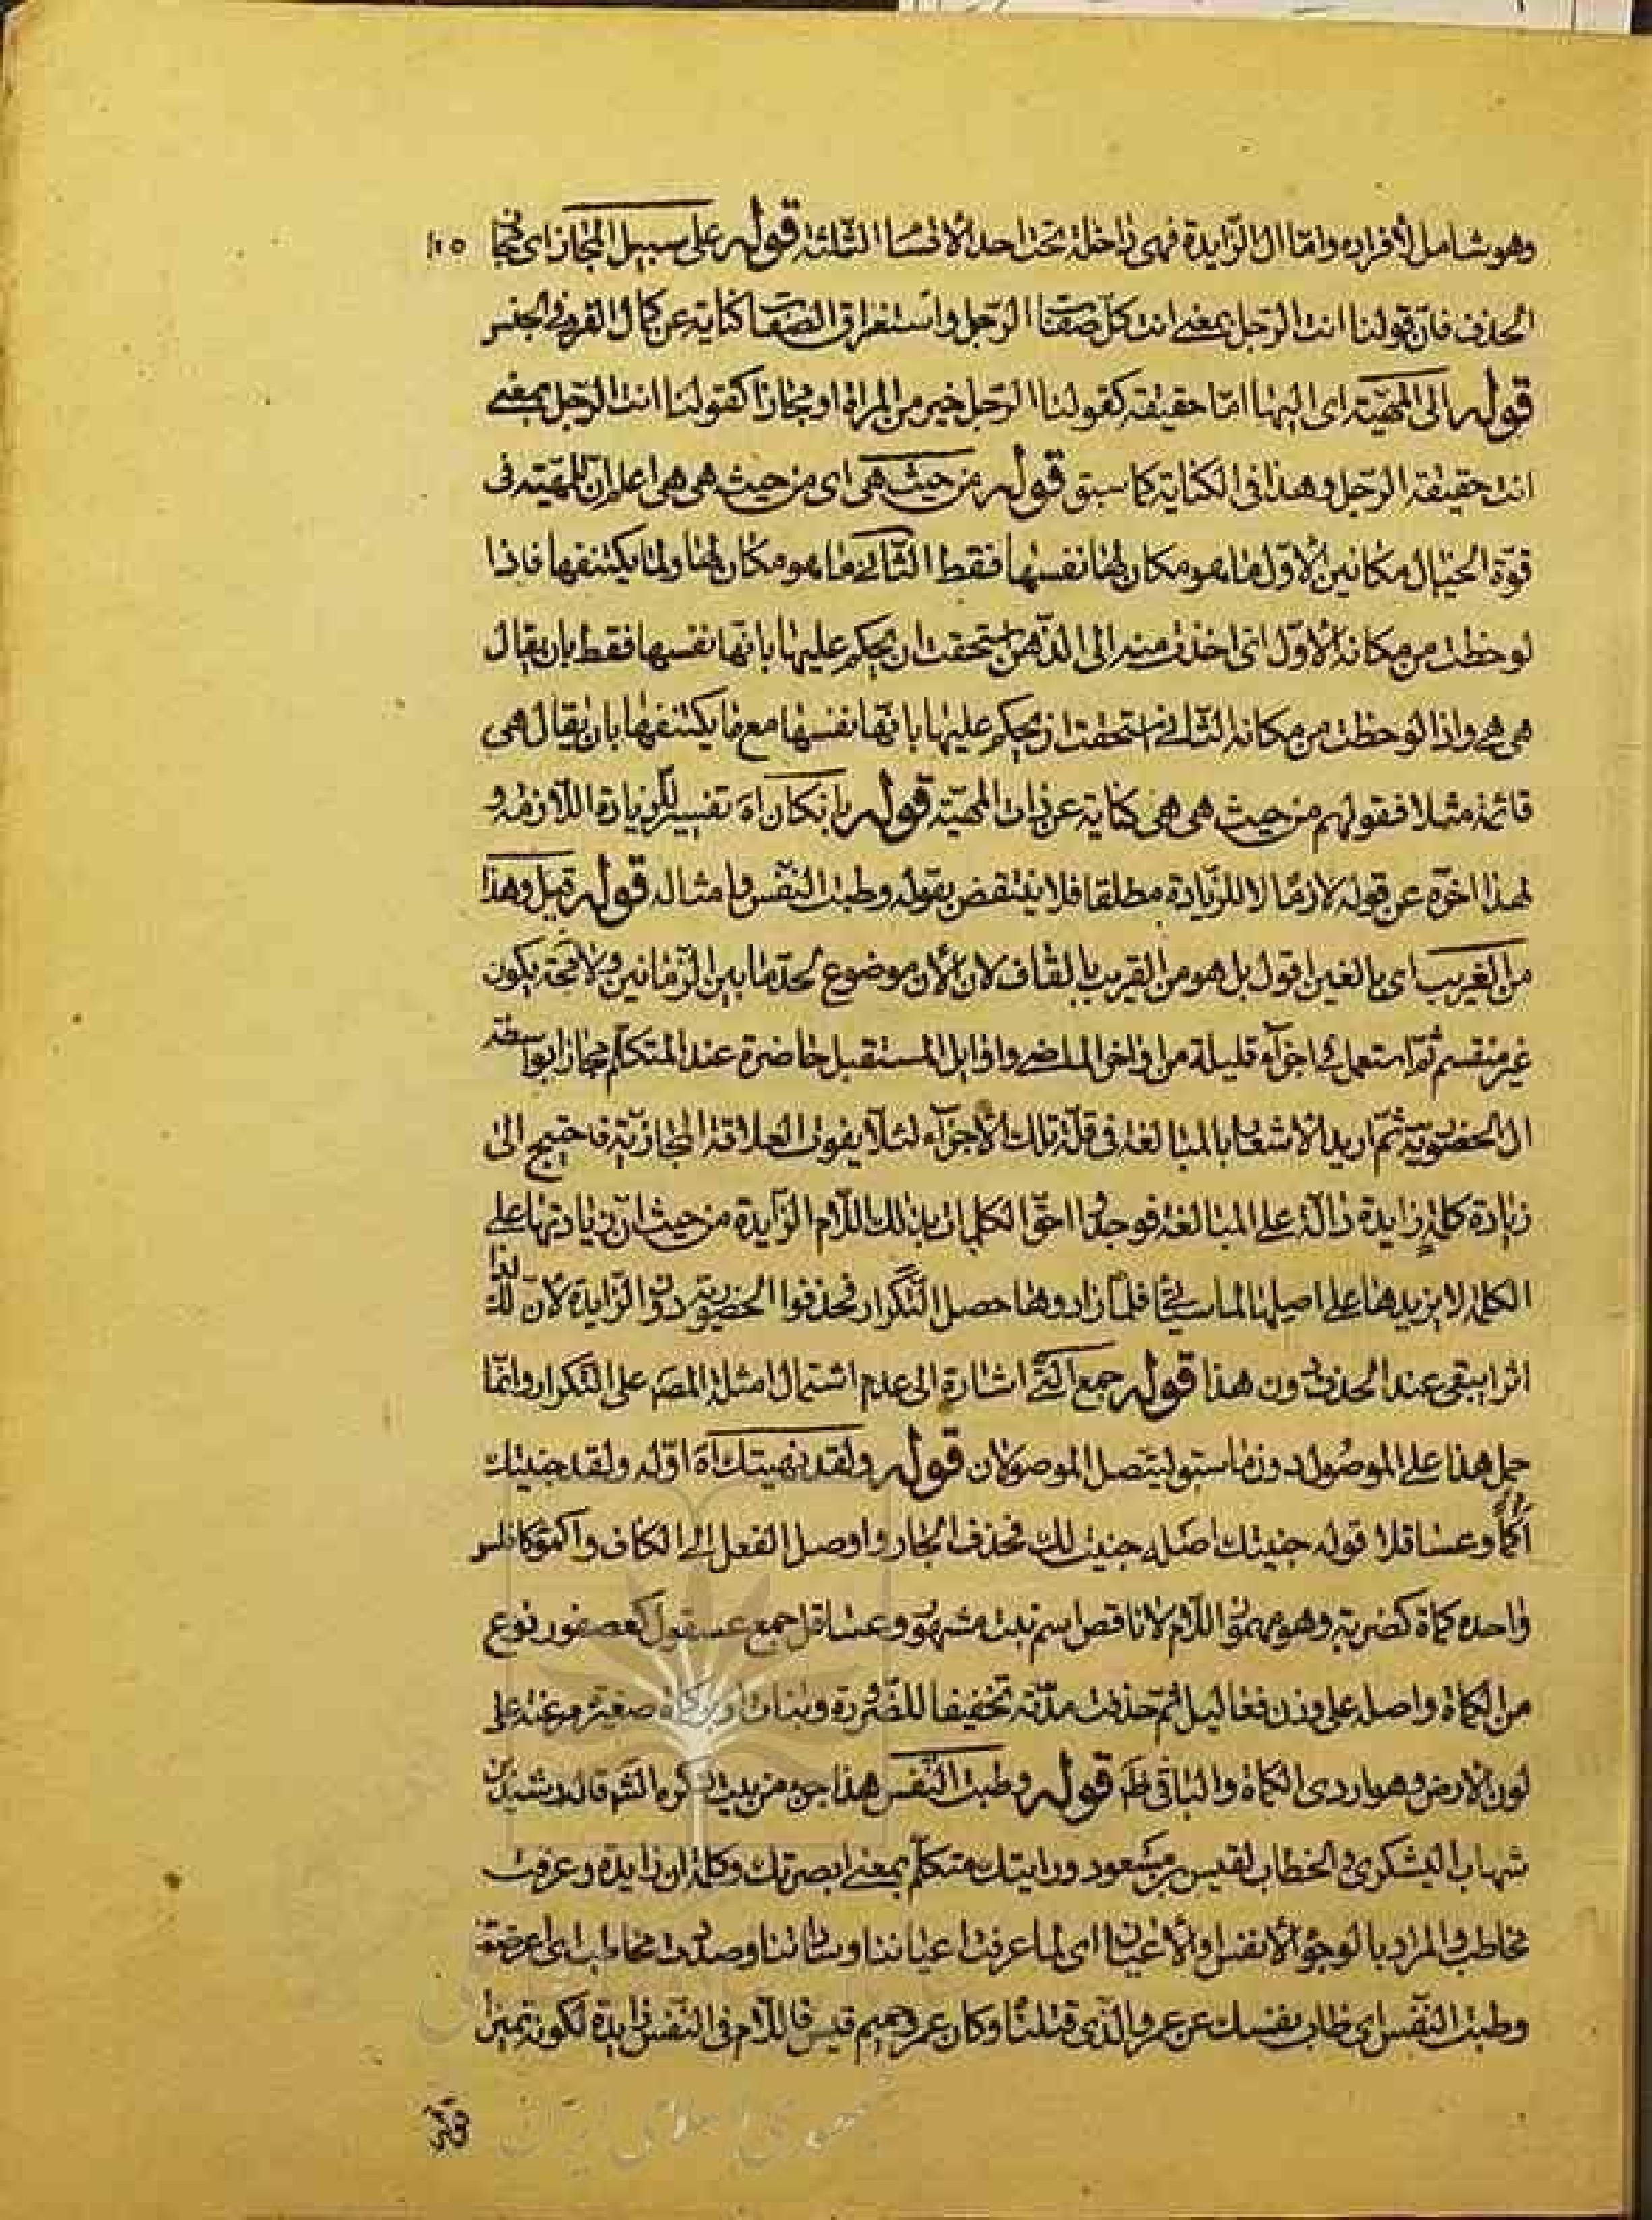 وهو شامل لأفراده واما ال الزايدة فهى داخلة تحت احد الاقسا الثلثة قوله على سبيل المجاز اى مجا ١٢٥
الحذف فان قولنا انت الرجل بمعنى انت كل صفتا الرجل واستغراق الصفا كناية عن كمال الفرد فى الجنس
قوله الى المهيّة اى اليها امّا حقيقة كقولنا الرجل خير من المراة او مجازا كقولنا انت الرجل بمعنى
انت حقيقة الرجل وهذا فى الكناية كما سبق قوله من حيث هى اى من حيث هى هى اعلم ان للمهيّة فى
قوّة الخيال مكانين الاول ما هو مكان لها نفسها فقط الثانى ما هو مكان لها ولما يكتنفها فاذا
لوحظت من مكانه الاوّل اى اخذت منه الى الذّهن استحقت ان يحكم عليها بانّها نفسها فقط بان يقال
هى هى واذا لوحظت من مكانه الثانى استحقت ان يحكم عليها بانّها نفسها مع ما يكتنفها بان يقال هى
قائمة مثلا فقولهم من حيث هى هى كناية عن ذات المهيّة قوله بان كان اه تفسير للزيادة اللازمة و
لهذا اخره عن قوله لازما لا للزّيادة مطلقا فلا ينتقض بقوله وطبت النفس وامثاله قوله قيل وهذا
من الغريب اى بالغين اقول بل هو من القريب بالقاف لان الأن موضوع لحد ما بين الزمانين و يكون
غير منقسم ثم استعمل فى اجزآء قليلة من اواخر الماضى واوايل المستقبل حاضرة عند المتكلّم مجازا بواسطة
ال الحضوريّة ثمّ اريد الاشعا بالمبالغة فى قلّة تلك الأجزآء لئلّا يفوت العلاقة المجازيّة فاحتيج الى
زيادة كلمة زايدة دالّة على المبالغة فوجدوا احقّ الكلمات بذلك اللّام الزّايدة من حيث ان زيادتها على
الكلمة لا يزيدها على اصلها لما سيجئ فلمّا زادوها حصل التّكرار فحذفوا الحضوريّة دون الزّايدة لأن لهذا
اثرا يبقى عند الحذف دون هذا قوله جمع التى اشارة الى عدم اشتمال امثلة المص على التّكرار وانّما
حمل هذا على الموصول دون ما سبق ليتصل الموصولان قوله ولقد نهيتك اه اوّله ولقد جنيتك
اكمؤا وعساقلا قوله جنيتك اصله جنيت لك فحذف الجار واوصل الفعل الى الكاف واكمؤ كافلس
واحده كماة كضربة وهو مهموز اللّام لا ناقص اسم نبت مشهور وعساقل جمع عسقول كعصفور نوع
من الكماة واصله على وزن فعاليل ثم حذفت مدّته تخفيفا للضّرورة وبنات اوبر كماة صغيرة مزغبة على
لون الارض وهو اردى الكماة والباقى ظ قوله وطبت النّفس هذا جزء من بيت ذكره الشّ قاله رشيد بن
شهاب اليشكرى فى الخطاب لقيس بن مسعود ورايتك متكلّم بمعنى ابصرتك وكلمة ان زايدة وعرفت
مخاطب والمراد بالوجوه الانفس والأعيان اى لما عرفت اعياننا وساداتنا وصددت مخاطب اى اعرضت
وطبت النّفس اى طاب نفسك عن عمرو الّذى قتلنا وكان عمرو حميم قيس فاللّام فى النّفس زايدة لكونه تميزا